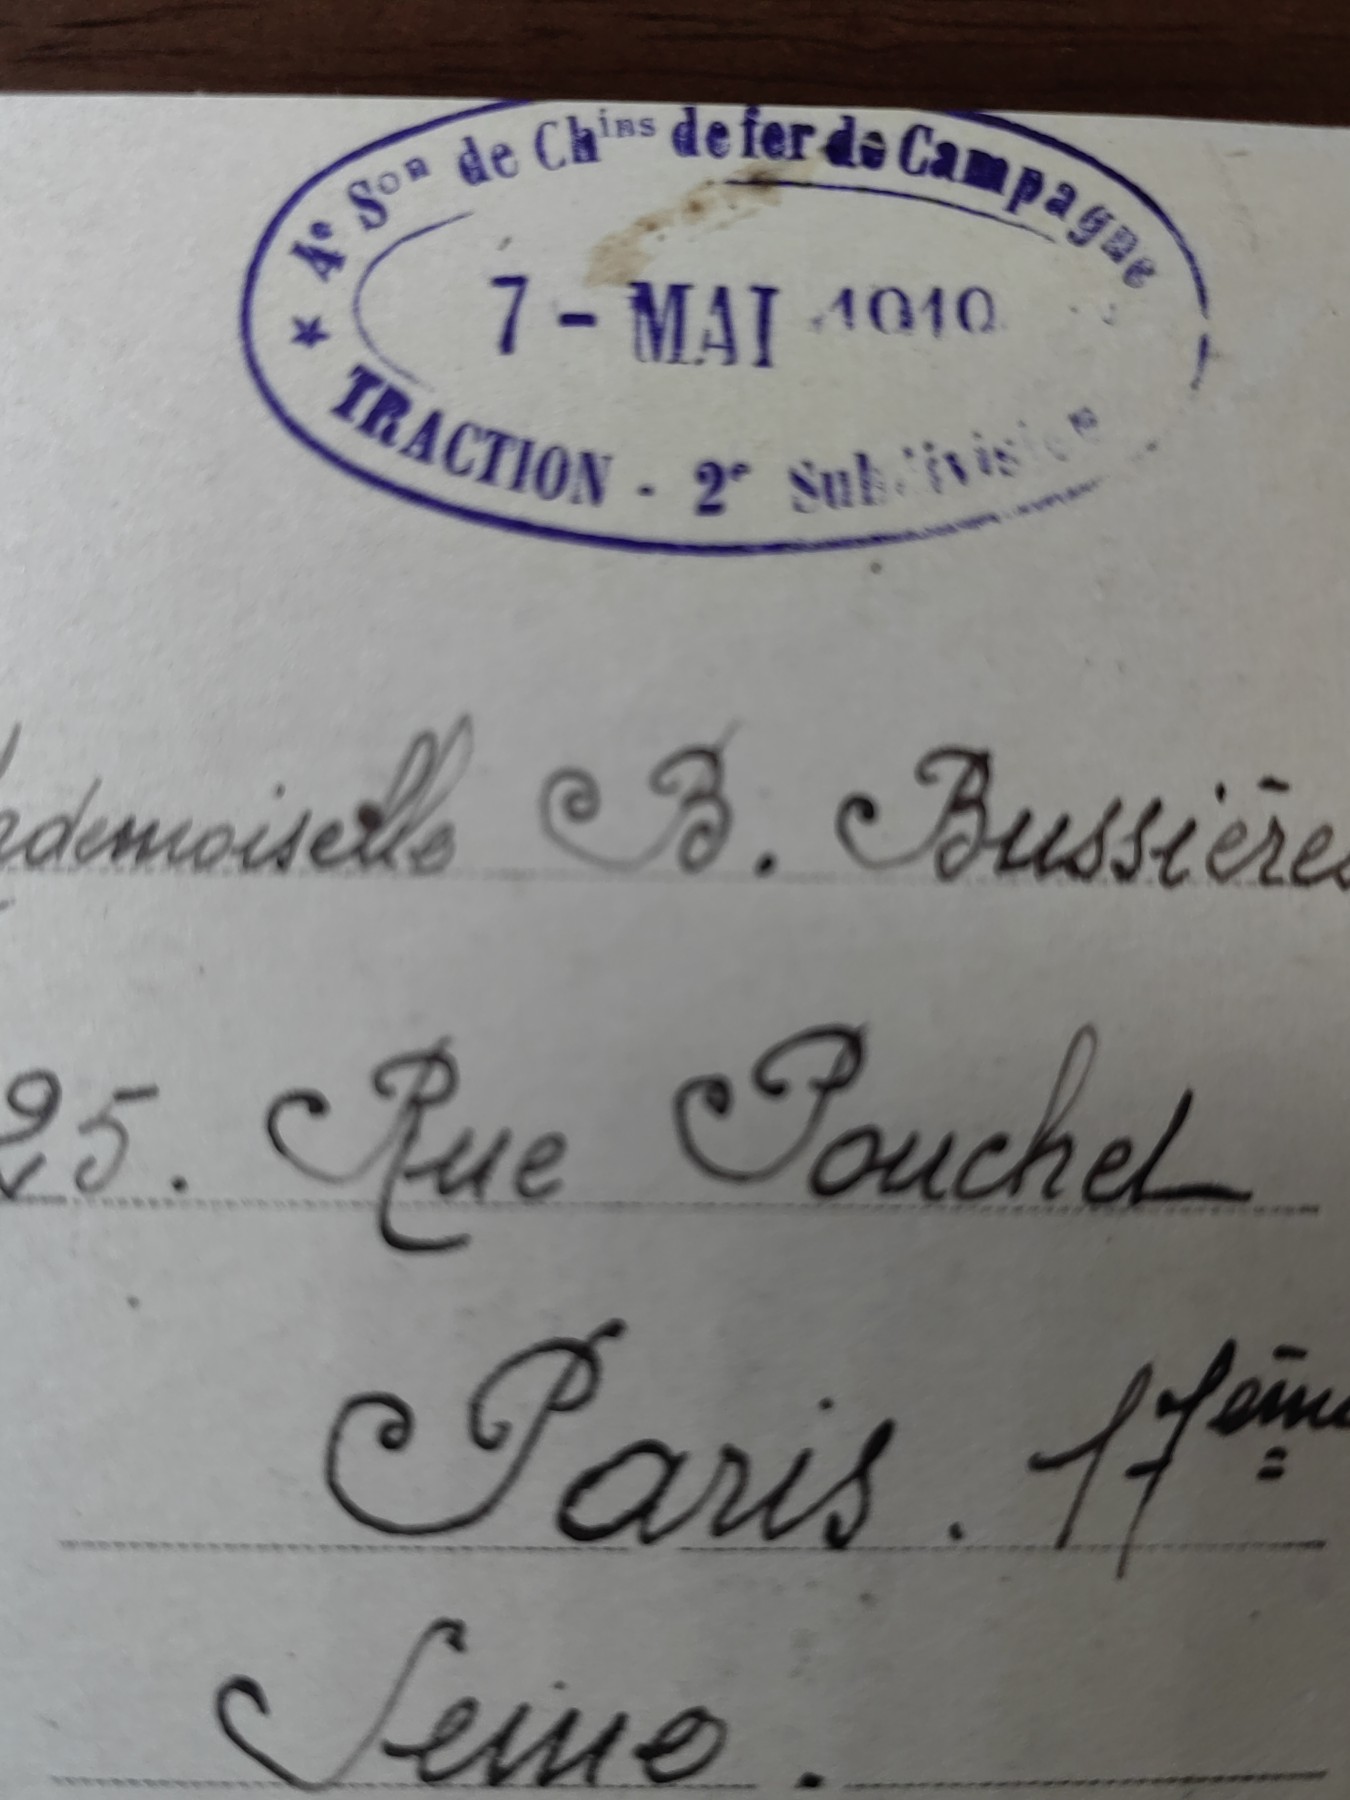 4e Son de Chins de fer de Campagne
7 - MAI 1919
TRACTION - 2e Subdivision
Mademoiselle B. Bussières
25. Rue Pouchet
Paris. 17ème
Seine.